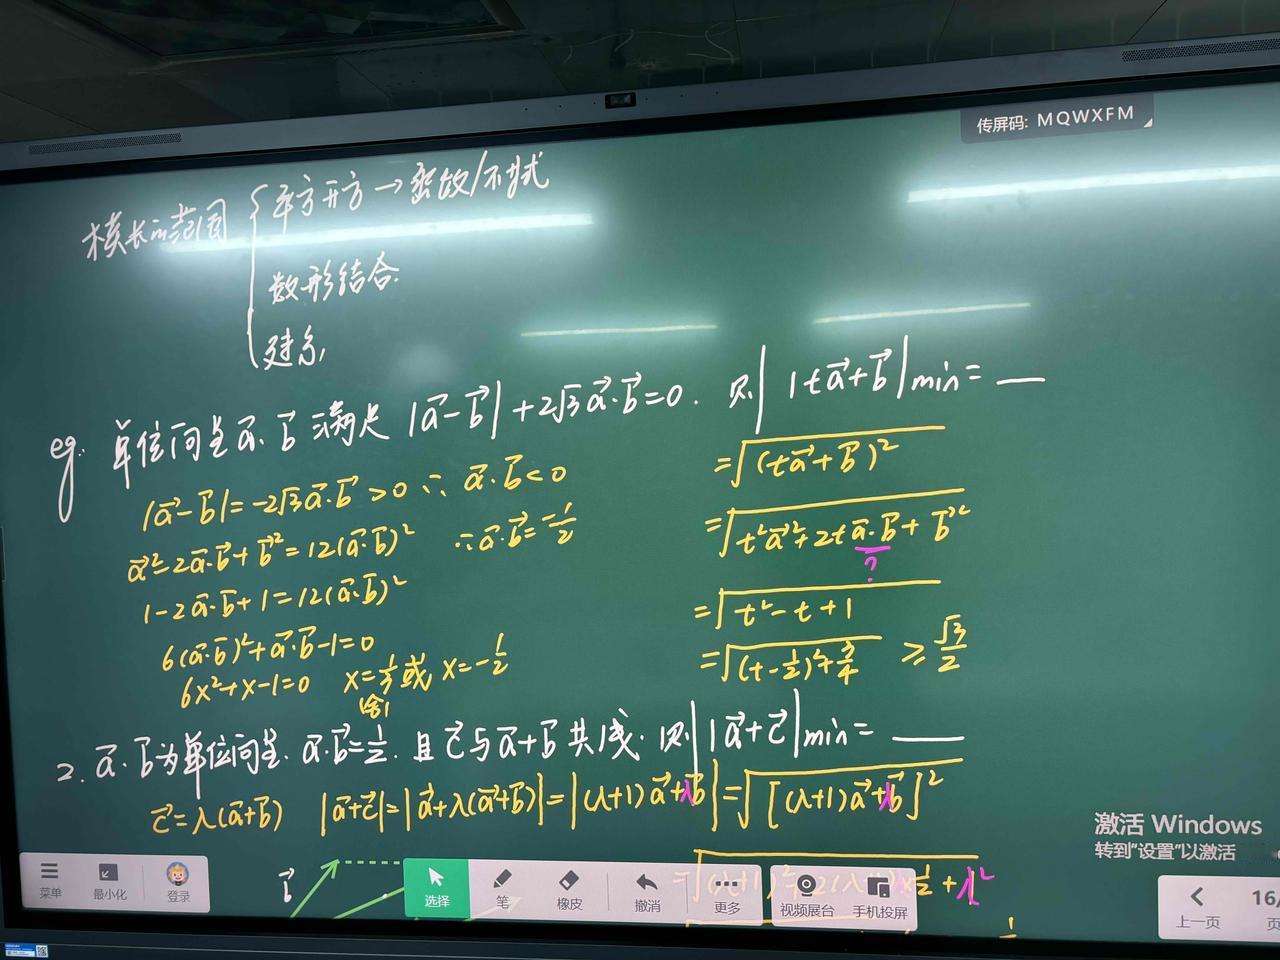 传屏码: MQWXFM
模长的范围
平方开方→函数/不等式
数形结合
建系
eg. 单位向量a⃗,b⃗满足|a⃗-b⃗|+2√3a⃗·b⃗=0. 则|ta⃗+b⃗|min=__
|a⃗-b⃗|=-2√3a⃗·b⃗>0 ∴ a⃗·b⃗<0
a⃗²-2a⃗·b⃗+b⃗²=12(a⃗·b⃗)² ∴a⃗·b⃗=-1/2
1-2a⃗·b⃗+1=12(a⃗·b⃗)²
6(a⃗·b⃗)²+a⃗·b⃗-1=0
6x²+x-1=0 x=1/3或x=-1/2
舍
=√(ta⃗+b⃗)²
=√t²a⃗²+2ta⃗·b⃗+b⃗²
?
=√t²-t+1
=√(t-1/2)²+3/4 ≥√3/2
2. a⃗,b⃗为单位向量. a⃗·b⃗=1/2. 且c⃗与a⃗+b⃗共线. 则|a⃗+c⃗|min=____
c⃗=λ(a⃗+b⃗) |a⃗+c⃗|=|a⃗+λ(a⃗+b⃗)|=|(λ+1)a⃗+λb⃗|=√[(λ+1)a⃗+λb⃗]²
b⃗
1/2+λ²
激活 Windows
转到"设置"以激活
菜单
最小化
登录
选择
笔
橡皮
撤消
更多
视频展台
手机投屏
上一页
16/
页